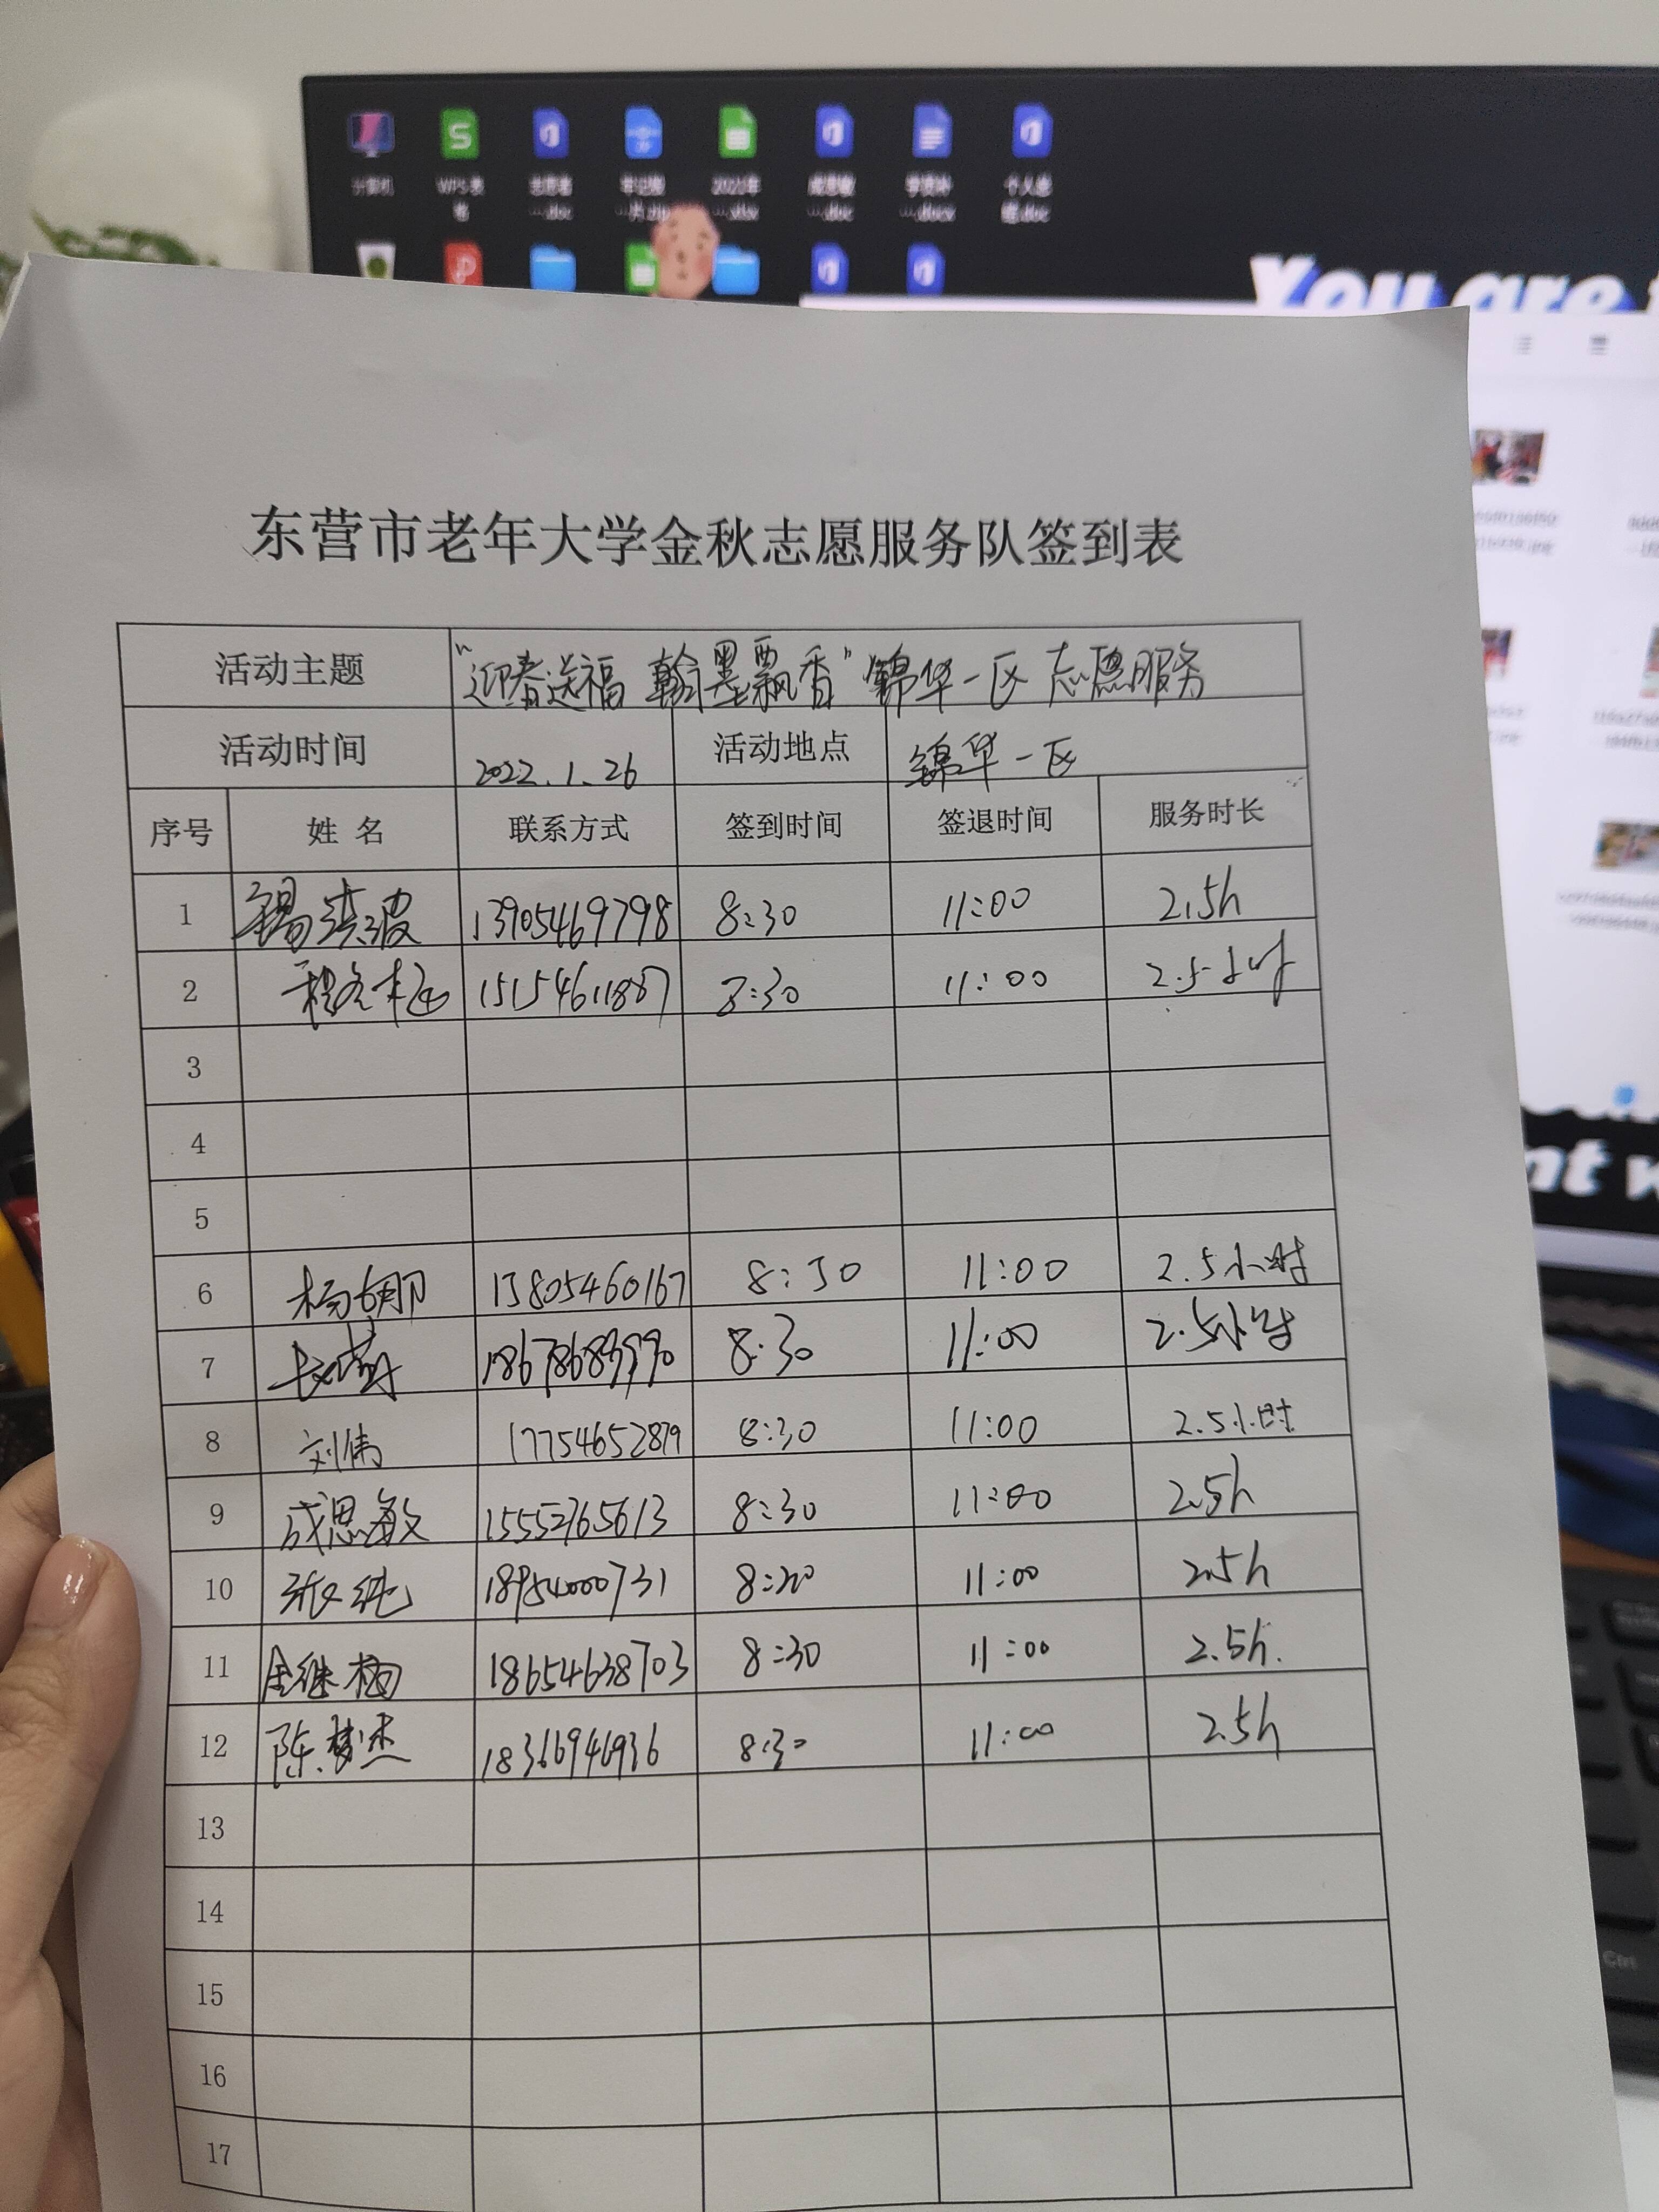 计算机
WPS表
格
个人总
结.doc
You are
东营市老年大学金秋志愿服务队签到表
活动主题 "迎春送福 翰墨飘香"锦华一区志愿服务
活动时间 2022.1.26 活动地点 锦华一区
序号 姓名 联系方式 签到时间 签退时间 服务时长
1 13905469798 8:30 11:00 2.5h
2 15154611887 8:30 11:00 2.5小时
3
4
5
6 杨娜 13805460167 8:30 11:00 2.5小时
7 8:30 11:00 2.5小时
8 刘伟 17754652879 8:30 11:00 2.5小时
9 成思敏 15552765613 8:30 11:00 2.5h
10 张纯 18954000731 8:30 11:00 2.5h
11 金继梅 18654638703 8:30 11:00 2.5h.
12 陈梦杰 18366946936 8:30 11:00 2.5h
13
14
15
16
17
Ctrl